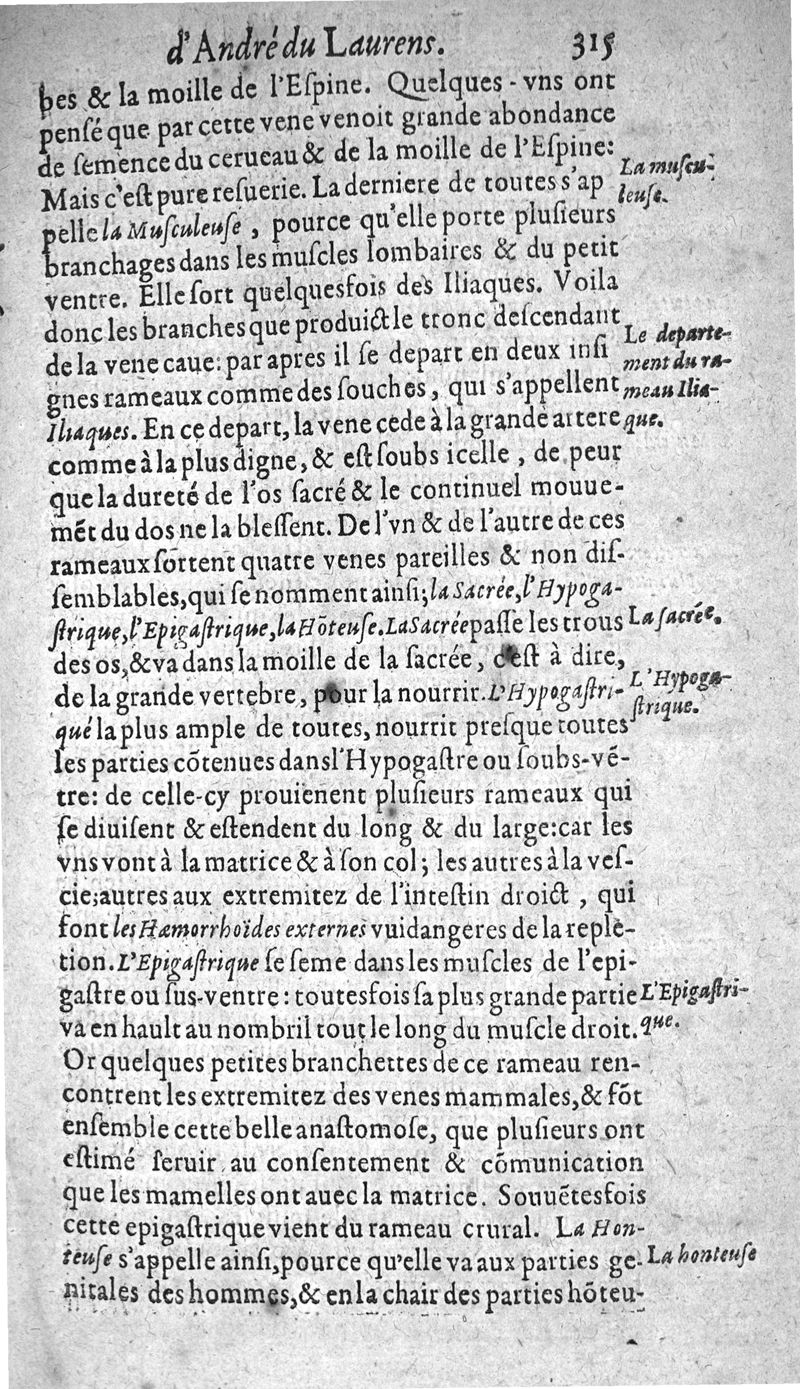 d'André du Laurens. 315
bes & la moille de l'Eſpine. Quelques-vns ont
penſé que par cette vene venoit grande abondance
de ſemence du cerueau & de la moille de l'Eſpine:
Mais c'eſt pure reſuerie. La derniere de toutes s'ap
pelle la Muſculeuſe, pource qu'elle porte pluſieurs
branchages dans les muſcles lombaires & du petit
ventre. Elle ſort quelquesfois des Iliaques. Voila
donc les branches que produict le tronc deſcendant
de la vene caue: par apres il ſe depart en deux inſi
gnes rameaux comme des ſouches, qui s'appellent
Iliaques. En ce depart, la vene cede à la grande artere
comme à la plus digne, & eſt ſoubs icelle, de peur
que la dureté de l'os ſacré & le continuel mouue-
mẽt du dos ne la bleſſent. De l'vn & de l'autre de ces
rameaux ſortent quatre venes pareilles & non diſ-
ſemblables, qui ſe nomment ainſi; la Sacrée, l'Hypoga-
ſtrique, l'Epigaſtrique, la Hõteuſe. La Sacrée paſſe les trous
des os, & va dans la moille de la ſacrée, c'eſt à dire,
de la grande vertebre, pour la nourrir. L'Hypogaſtri-
qué la plus ample de toutes, nourrit preſque toutes
les parties cõtenues dans l'Hypogaſtre ou ſoubs-vẽ-
tre: de celle-cy prouienent pluſieurs rameaux qui
ſe diuiſent & eſtendent du long & du large: car les
vns vont à la matrice & à ſon col; les autres à la veſ-
cie; autres aux extremitez de l'inteſtin droict, qui
font les Hæmorrhoïdes externes vuidangeres de la reple-
tion. L'Epigaſtrique ſe ſeme dans les muſcles de l'epi-
gaſtre ou ſus-ventre: toutesfois ſa plus grande partie
va en hault au nombril tout le long du muſcle droit.
Or quelques petites branchettes de ce rameau ren-
contrent les extremitez des venes mammales, & fõt
enſemble cette belle anaſtomoſe, que pluſieurs ont
eſtimé ſeruir au conſentement & cõmunication
que les mamelles ont auec la matrice. Souuẽtesfois
cette epigaſtrique vient du rameau crural. La Hon-
teuſe s'appelle ainſi, pource qu'elle va aux parties ge-
nitales des hommes, & en la chair des parties hõteu-
La muſcu-
leuſe.
Le departe-
ment du ra-
meau Ilia-
que.
La ſacrée.
L'Hypoga-
ſtrique.
L'Epigaſtri-
que.
La honteuſe